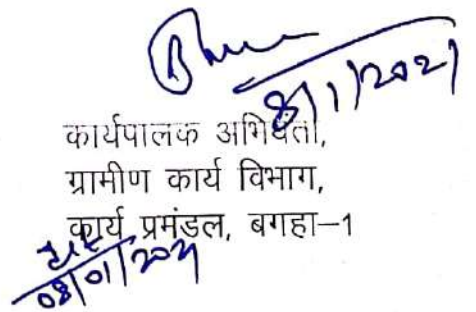 8/1/2021
कार्यपालक अभियंता,
ग्रामीण कार्य विभाग,
कार्य प्रमंडल, बगहा–1
08/01/2021